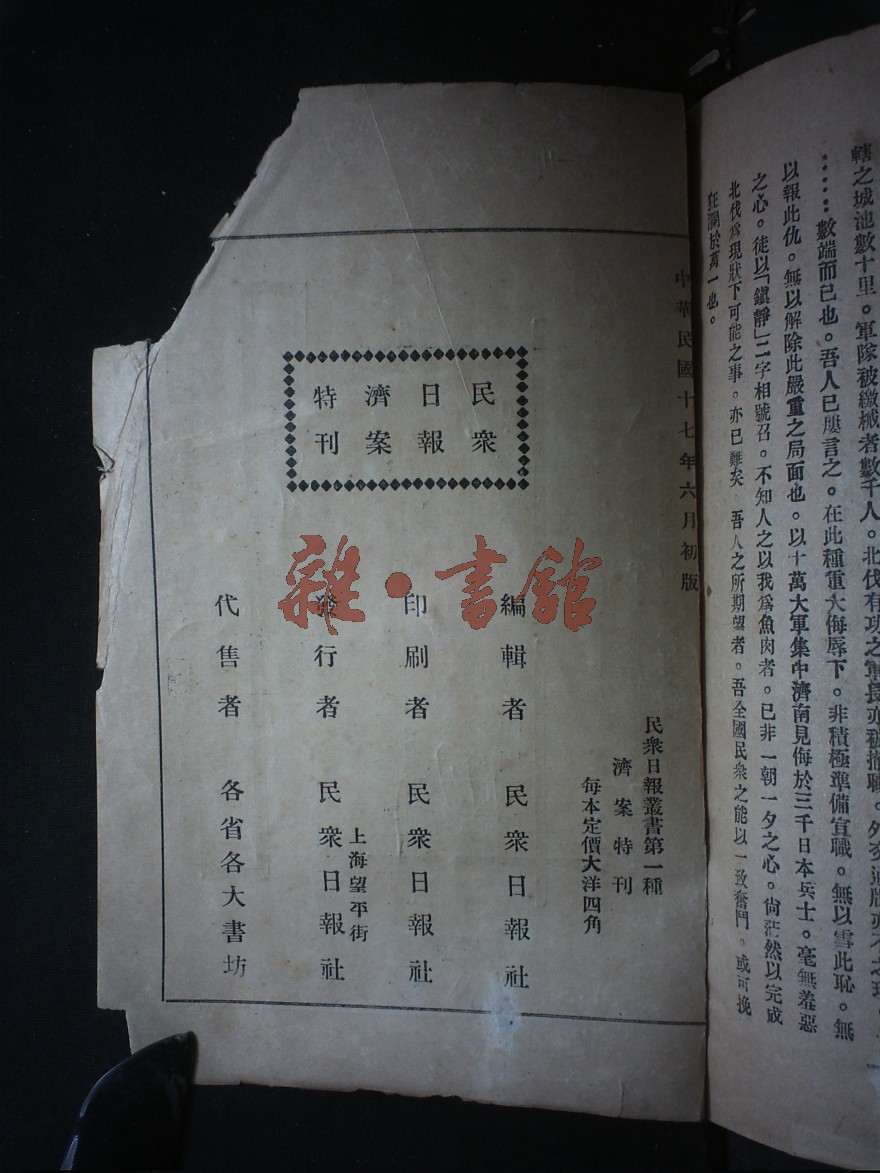 轄之城池數十里。軍隊被繳械者數千人。北伐有功之軍長亦被撤職。外交通牒亦
……數端而已也。吾人已屢言之。在此種重大侮辱下。非積極準備宣職。無以雪此恥。無
以報此仇。無以解除此嚴重之局面也。以十萬大軍集中濟南見侮於三千日本兵士。毫無羞惡
之心。徒以「鎭靜」二字相號召。不知人之以我爲魚肉者。已非一朝一夕之心。尙茫然以完成
北伐爲現狀下可能之事。亦已難矣 吾人之所期望者。吾全國民衆之能以一致奮鬥。或可挽
狂瀾於萬一也。
中華民國十七年六月初版
民衆
日報
濟案
特刊
民衆日報叢書第一種
濟案特刊
每本定價大洋四角
編輯者 民衆日報社
印刷者 民衆日報社
上海望平街
發行者 民衆日報社
代售者 各省各大書坊
雜·書館